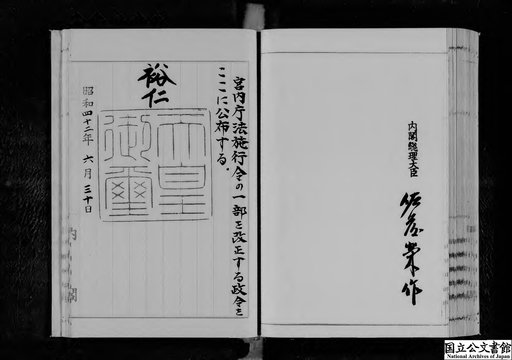 内閣總理大臣
佐藤榮作
宮内庁法施行令の一部を改正する政令を
ここに公布する。
裕仁
天皇
御璽
昭和四十二年六月三十日
内閣
国立公文書館
National Archives of Japan